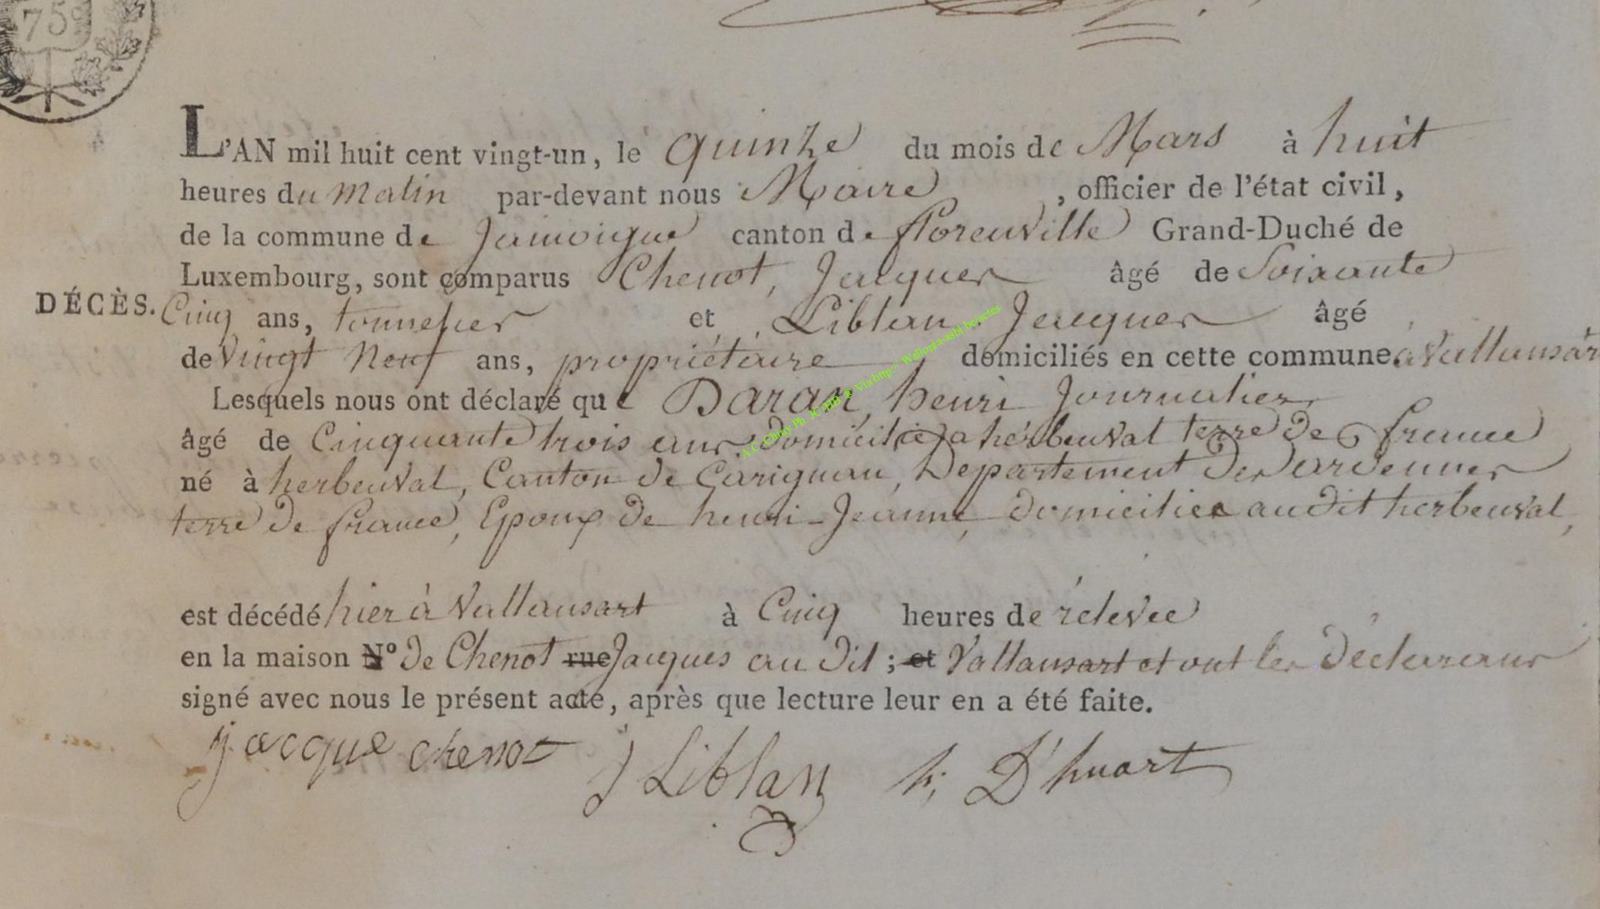 75
L'AN mil huit cent vingt-un, le quinze du mois de Mars à huit
heures du matin par-devant nous Maire, officier de l'état civil,
de la commune de Jamoigne canton de florenville Grand-Duché de
Luxembourg, sont comparus Chenot, Jacques âgé de Soixante
DÉCÈS.
Cinq ans, tonnelier et Liblan Jacques âgé
de Vingt Neuf ans, propriétaire domiciliés en cette commune a Vallansart
Lesquels nous ont déclaré que Daran, henri Journalier
âgé de Cinquante trois ans, domicilié a herbeuval terre de france
né à herbeuval, Canton de Carignan, Departement des ardennes
terre de france, Epoux de henri-Jeanne, domiciliée audit herbeuval,
est décédé hier à Vallansart à Cinq heures de rélevée
en la maison N° de Chenot rue Jacques au dit ; et Vallansart et ont les déclarans
signé avec nous le présent acte, après que lecture leur en a été faite.
jacque chenot J Liblan h; D'huart